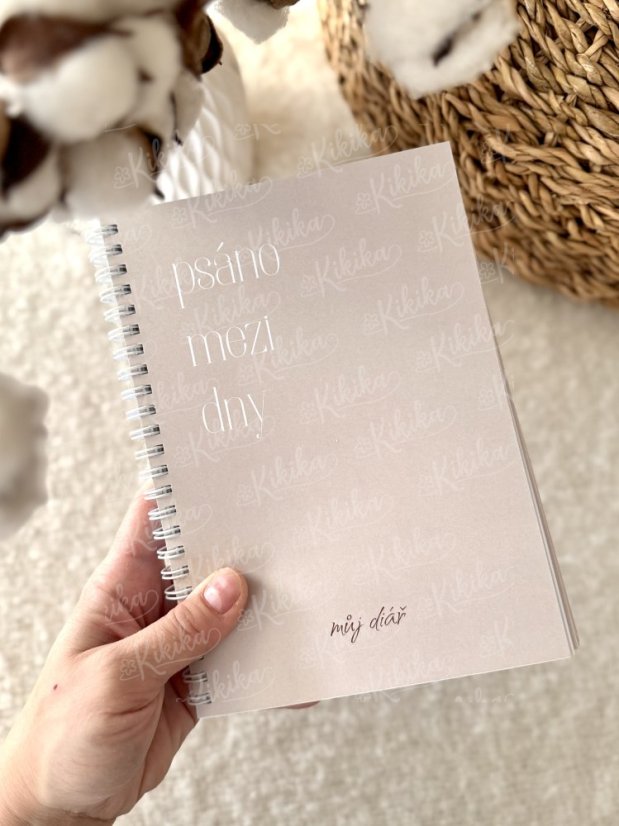 psáno
mezi
dny
můj diář
Kikika